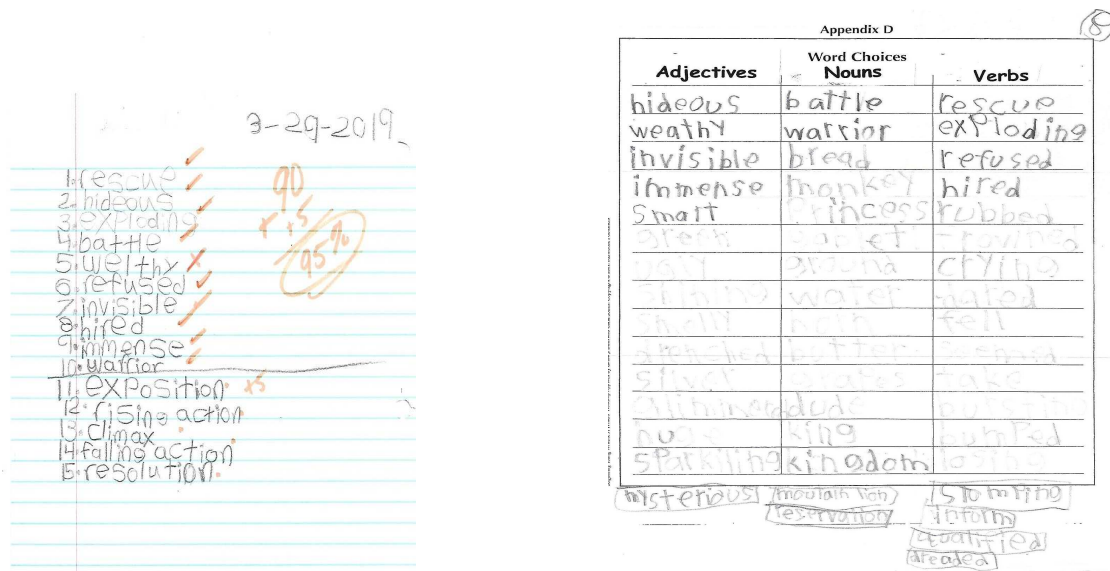 3-29-2019
1. rescue
2. hideous
3. exploding
4. battle
5. welthy
6. refused
7. invisible
8. hired
9. immense
10. warrior
90
+5
95%
11. exposition +5
12. rising action
13. climax
14. falling action
15. resolution
8
Appendix D
Word Choices
Adjectives Nouns Verbs
hideous battle rescue
weathy warrior exploding
invisible bread refused
immense monkey hired
smart Princess rubbed
green
ugly ground crying
shining water
smelly fell
take
dude
huge king bumped
sparkiling kingdom losing
mysterious moutain lion stomping
reservation inform
qualified
dreaded